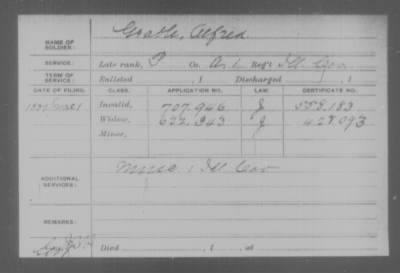 NAME OF SOLDIER: Alfred
SERVICE: Late rank, P Co. A, L Reg't Ill Cav
TERM OF SERVICE: Enlisted , 1 Discharged , 1
DATE OF FILING. CLASS. APPLICATION NO. LAW. CERTIFICATE NO.
Invalid, 707.946 J 558.183
Widow, 622.343 J 428.093
Minor,
ADDITIONAL SERVICES: Ill Cav
REMARKS:
Died , 1 , at